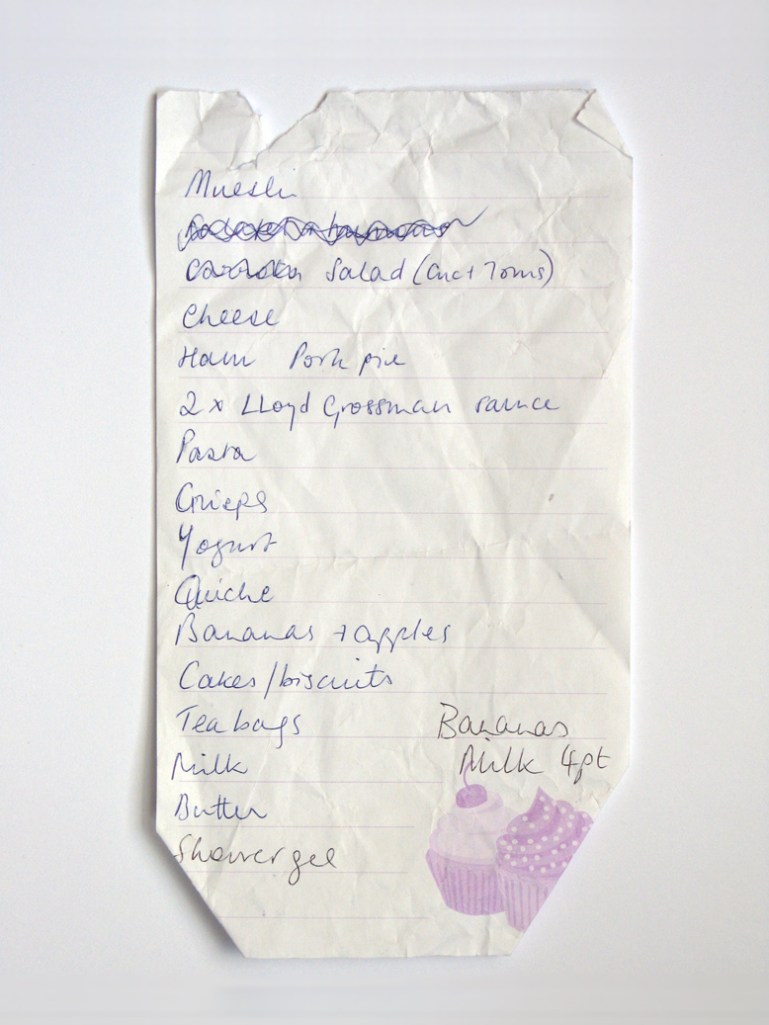 Muesli
Salad (Cuc + Toms)
Cheese
Ham Pork pie
2 x LLoyd Grossman saunce
Pasta
Crisps
Yogurt
Quiche
Bananas + apples
Cakes/biscuits
Tea bags
Bananas
Milk
Milk 4pt
Butter
Shower gel